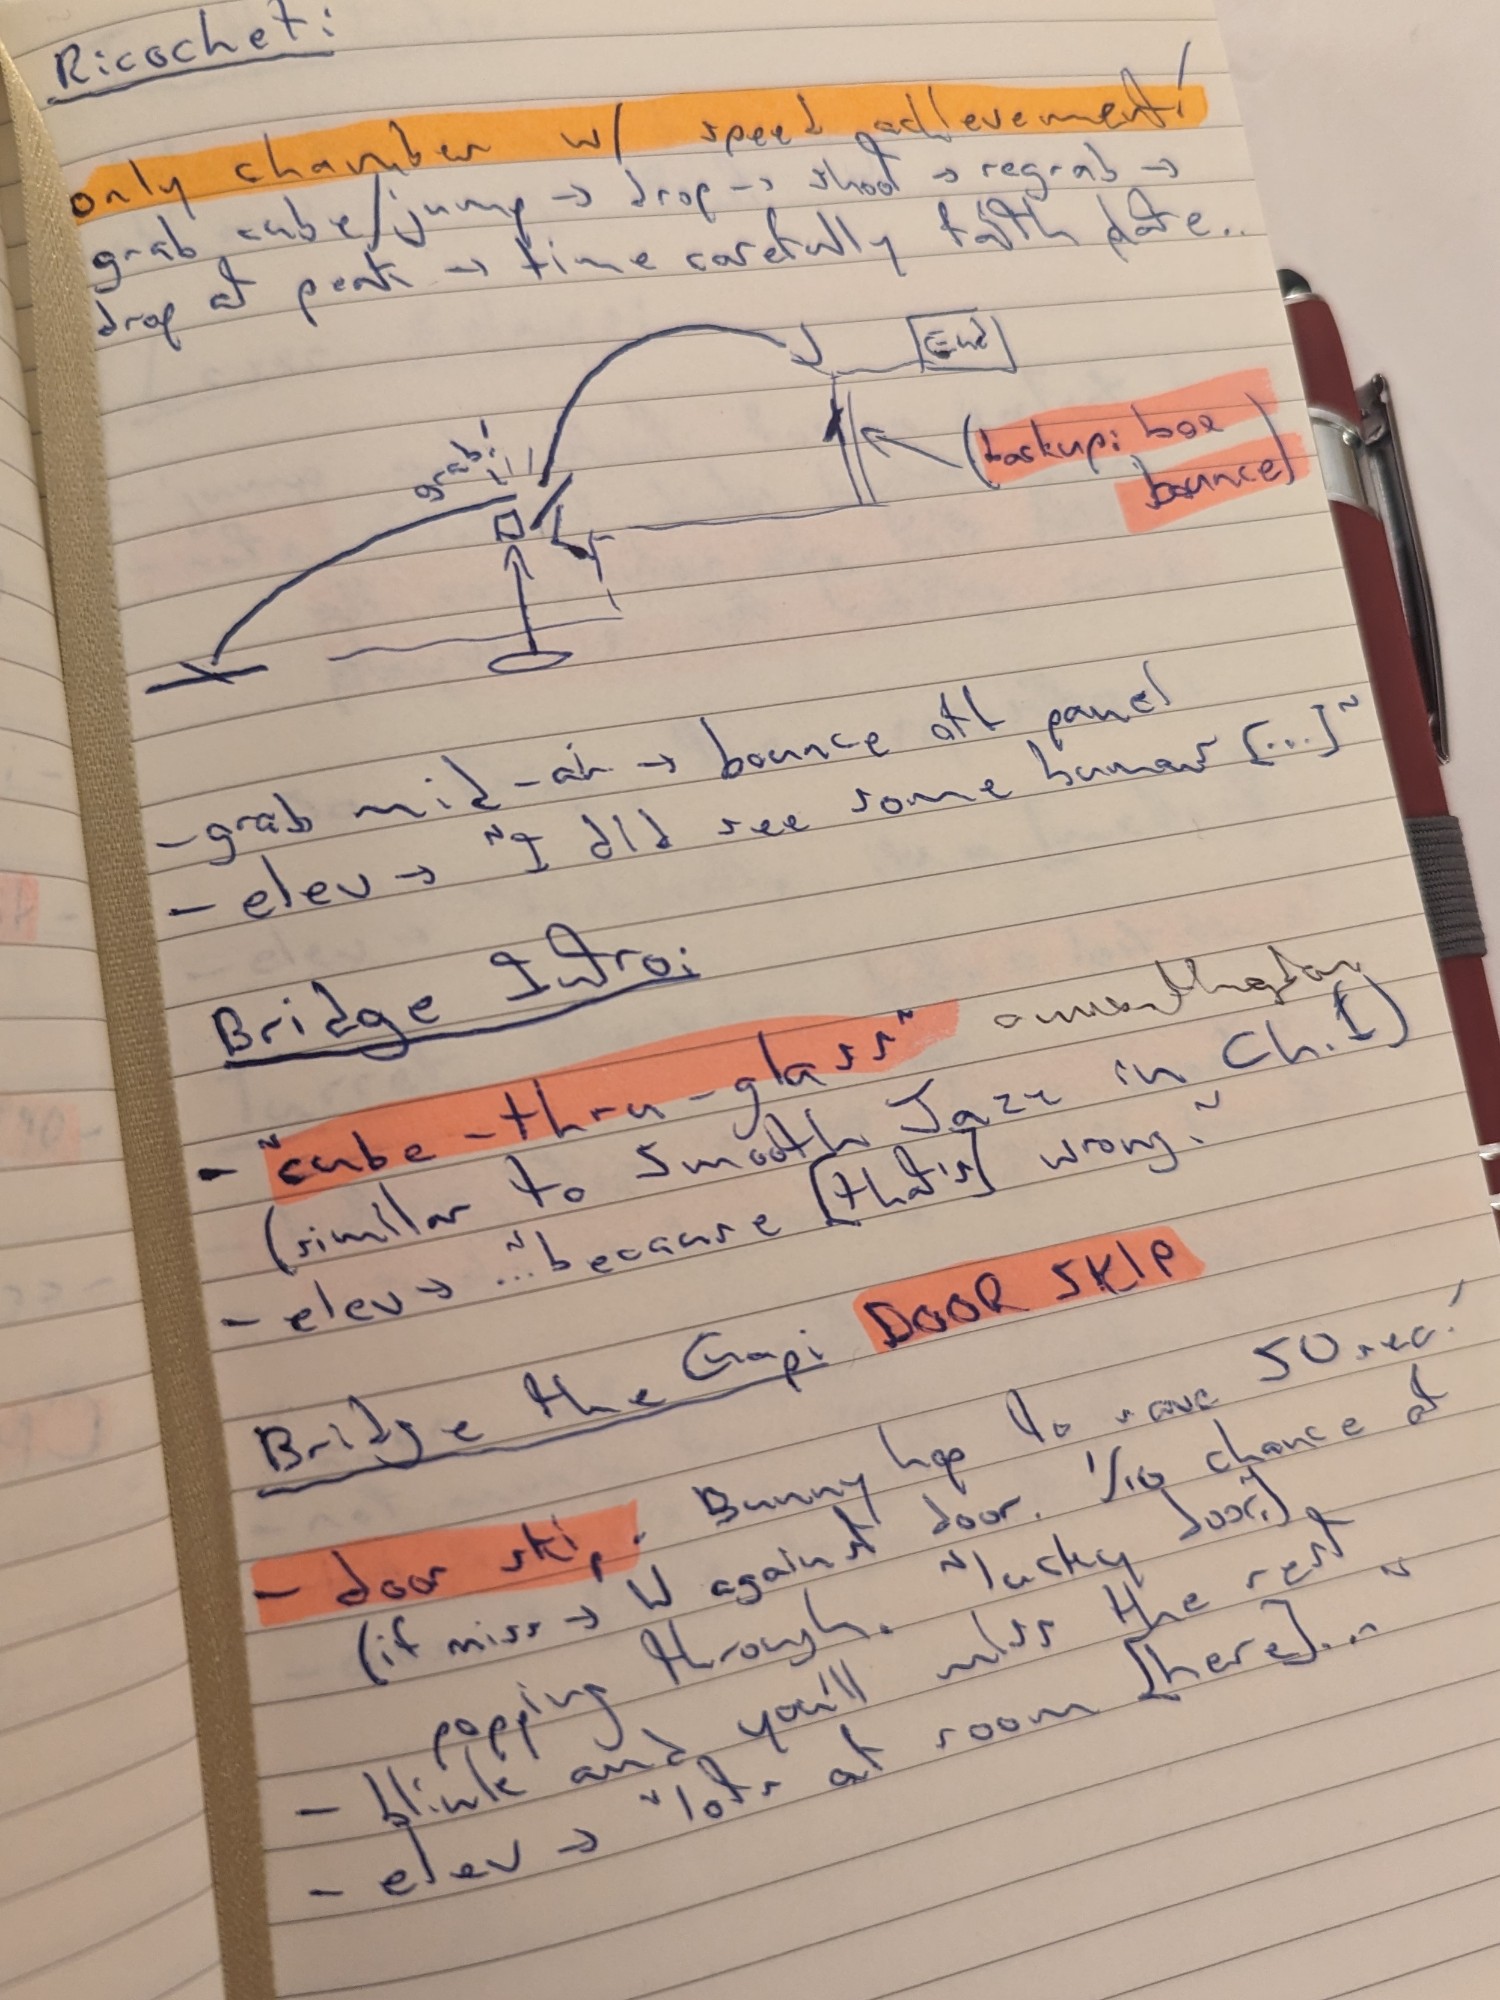 Ricochet:
only chamber w/ speed achievement!
grab cube/jump → drop → shoot → regrab →
drop at peak → time carefully faith plate..
End
grab!
(backup: box
bounce)
- grab mid-air → bounce off panel
- elev → "I did see some humans [...]"
Bridge Intro:
- "cube-thru-glass"
(similar to Smooth Jazz in Ch.1)
- elev → "...because [that's] wrong."
Bridge the Gap: DOOR SKIP
- door skip. Bunny hop to save 50 sec!
(if miss → W against door. 1/10 chance at
popping through. "lucky door.")
- blink and you'll miss the rest
- elev → "lots at room [here]..."